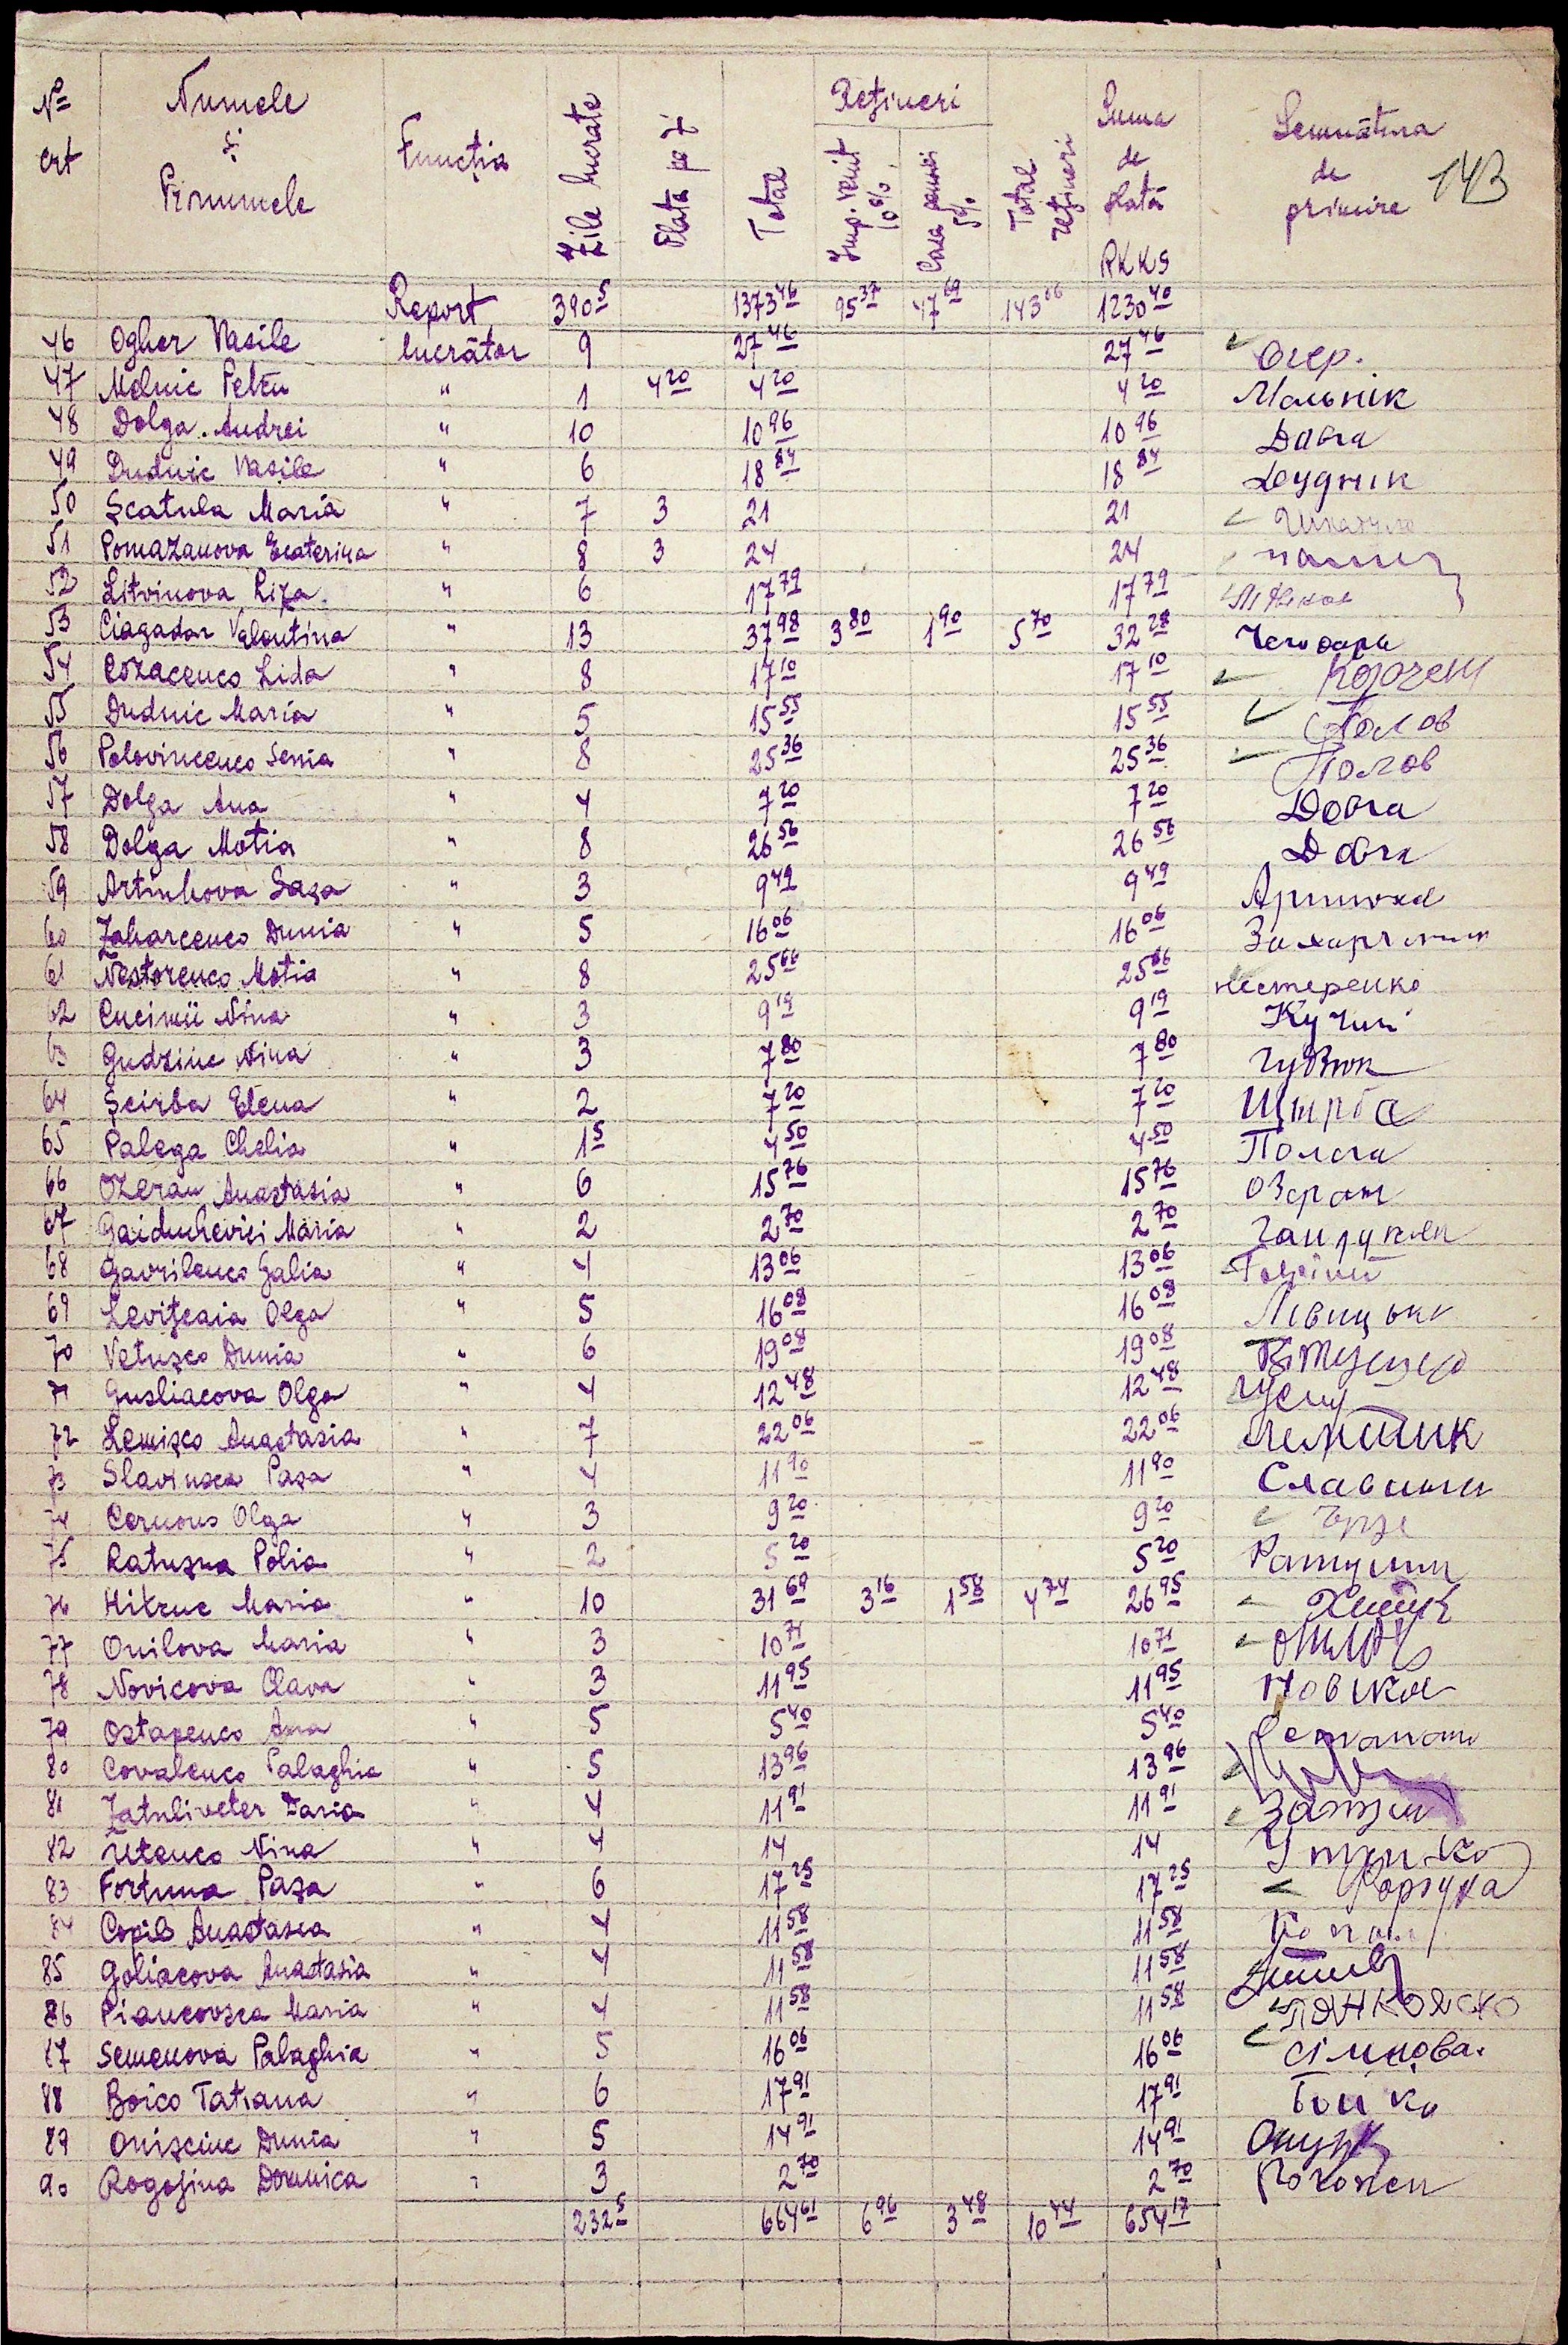 143
Nº crt Numele și Pronumele Funcția Zile lucrate Plata pe zi Total Rețineri Imp. venit 10% Casa pensiei 5% Total rețineri Suma de plată RKKS Semnătura de primire
Report 390 5 1373 46 95 37 47 69 143 06 1230 40
46 Ogher Vasile lucrător 9 27 46 27 46 Огер.
47 Melnic Petru " 1 4 20 4 20 4 20 Мольнік
48 Dolga Andrei " 10 10 96 10 96 Довга
49 Dudnic Vasile " 6 18 84 18 84 Дудник
50 Șcatula Maria " 7 3 21 21
51 Pomazanova Ecaterina " 8 3 24 24
52 Litvinova Liza " 6 17 79 17 79
53 Ciagadar Valentina " 13 37 98 3 80 1 90 5 70 32 28
54 Cozacenco Lida " 8 17 10 17 10
55 Dudnic Maria " 5 15 55 15 55
56 Polovincenco Senia " 8 25 36 25 36 Полов
57 Dolga Ana " 4 7 20 7 20 Довга
58 Dolga Motia " 8 26 56 26 56 Довга
59 Artiuhova Sașa " 3 9 49 9 49
60 Zaharcenco Dunia " 5 16 06 16 06
61 Nestorenco Motia " 8 25 66 25 66 Нестеренко
62 Cucimii Nina " 3 9 19 9 19
63 Gudziuc Nina " 3 7 80 7 80
64 Șcirba Elena " 2 7 20 7 20 Щирба
65 Palega Chelia " 1 5 4 50 4 50 Полега
66 Ozeran Anastasia " 6 15 76 15 76 Озеран
67 Gaiduchevici Maria " 2 2 70 2 70
68 Gavrilenco Galia " 4 13 06 13 06
69 Levițcaia Olga " 5 16 08 16 08
70 Vetușco Dunia " 6 19 08 19 08
71 Gusliacova Olga " 4 12 48 12 48
72 Lemișco Anastasia " 7 22 06 22 06
73 Slavinsca Pașa " 4 11 90 11 90
74 Cernous Olga " 3 9 20 9 20
75 Ratușna Polia " 2 5 20 5 20
76 Hitruc Maria " 10 31 69 3 16 1 58 4 74 26 95
77 Onilova Maria " 3 10 71 10 71
78 Novicova Clava " 3 11 95 11 95 Новиков
79 Ostapenco Ana " 5 5 40 5 40
80 Covalenco Palaghia " 5 13 96 13 96
81 Zatuliveter Daria " 4 11 91 11 91
82 Utenco Nina " 4 14 14 Утенко
83 Fortuna Pașa " 6 17 25 17 25
84 Copil Anastasia " 4 11 58 11 58
85 Goliacova Anastasia " 4 11 58 11 58
86 Piancovsca Maria " 4 11 58 11 58
87 Semenova Palaghia " 5 16 06 16 06
88 Boico Tatiana " 6 17 91 17 91 Бойко
89 Onișciuc Dunia " 5 14 91 14 91
90 Rogojina Domnica " 3 2 70 2 70
232 5 664 61 6 96 3 48 10 44 654 17